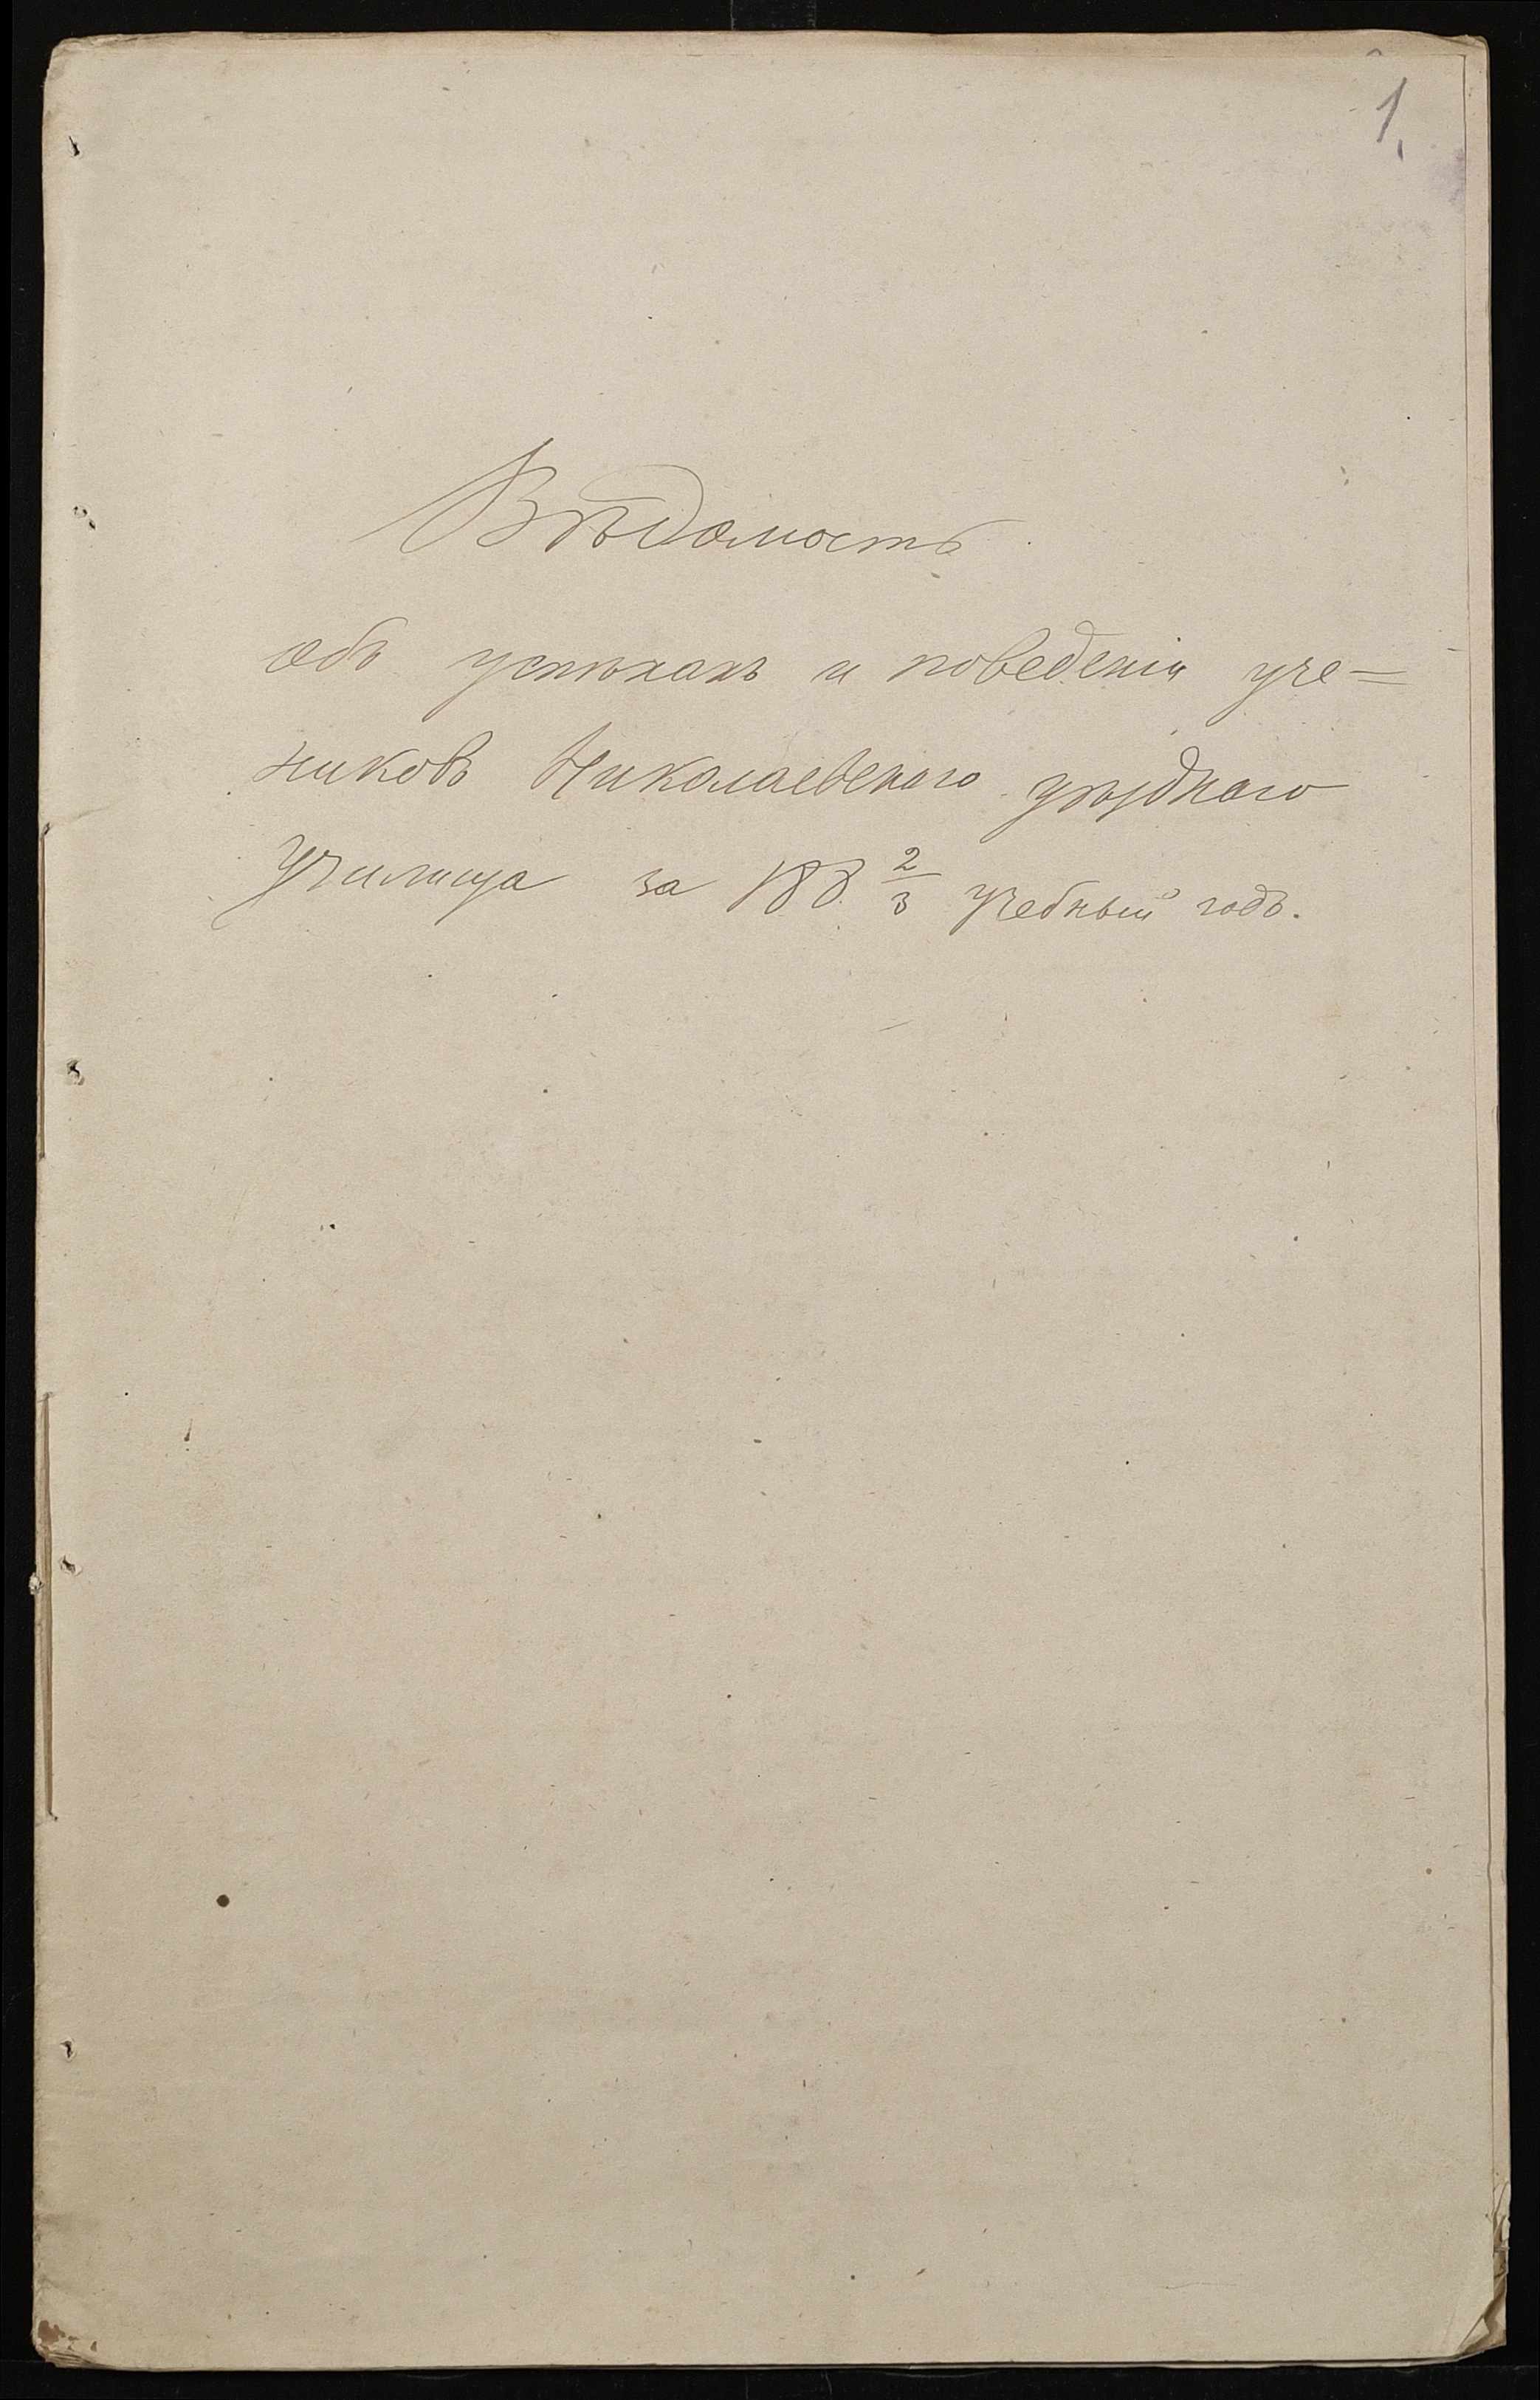 1
Вѣдомость
объ успѣхахъ и поведеніи уче=
никовъ Николаевскаго уѣзднаго
училища за 188 2/3 учебный годъ.